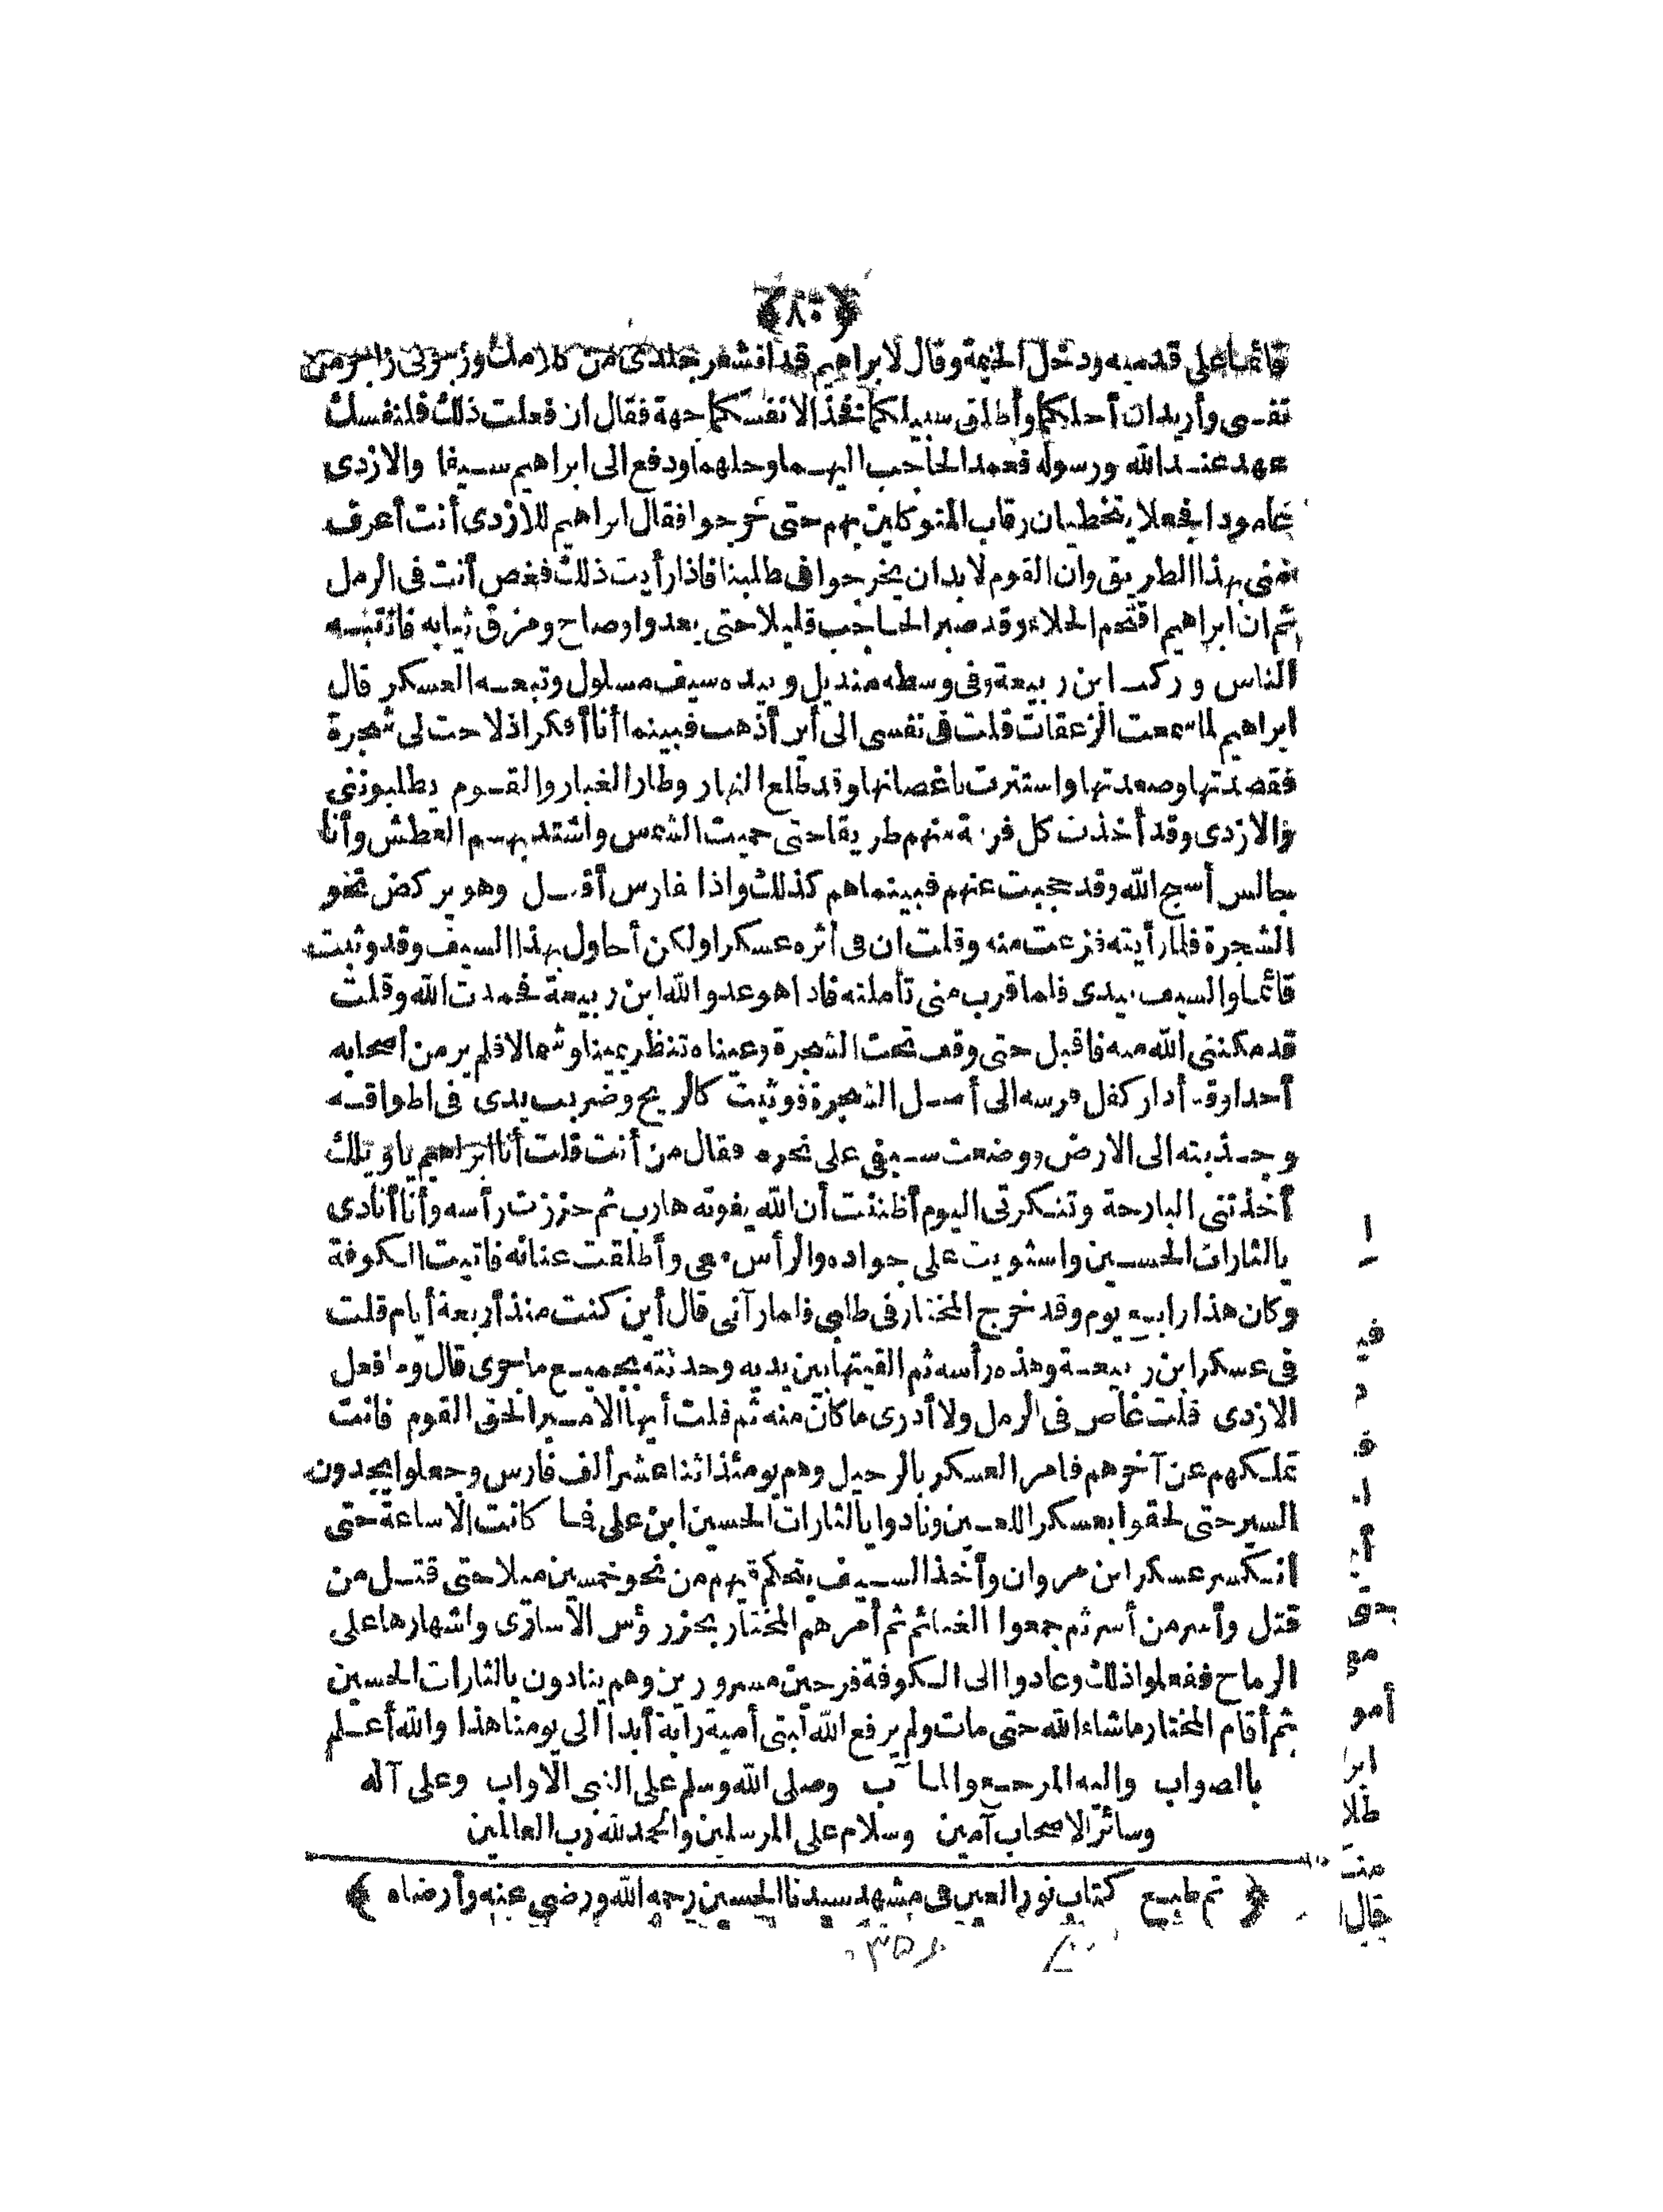 ﴿٨٠﴾
قائما على قدميه ودخل الخيمة وقال لابراهيم قد اقشعر جلدى من كلامك وزجرتنى زاجر من
نفسى وأريد ان أحلكما وأطلق سبيلكما فخذا لانفسكما جهة فقال ان فعلت ذلك فلنفسك
عهد عند الله ورسوله فعمد الحاجب اليهما وحلهما ودفع الى ابراهيم سيفا والازدى
عامودا فجعلا يتخطيان رقاب المتوكلين بهم حتى خرجوا فقال ابراهيم للازدى أنت أعرف
منى بهذا الطريق وان القوم لابد ان يخرجوا فى طلبنا فاذا رأيت ذلك فغص أنت فى الرمل
ثم ان ابراهيم اقتحم الخلاء وقد صبر الحاجب قليلا حتى بعدوا وصاح ومزق ثيابه فانتبه
الناس وركب ابن ربيعة وفى وسطه منديل وبيده سيف مسلول وتبعه العسكر قال
ابراهيم لما سمعت الزعقات قلت فى نفسى الى أين أذهب فبينما أنا أفكر اذ لاحت لى شجرة
فقصدتها وصعدتها واستترت باغصانها وقد طلع النهار وطار الغبار والقوم يطلبوننى
والازدى وقد أخذت كل فرقة منهم طريقا حتى حميت الشمس واشتد بهم العطش وأنا
جالس أسبح الله وقد حجبت عنهم فبينما هم كذلك واذا بفارس أقبل وهو يركض نحو
الشجرة فلما رأيته فزعت منه وقلت ان فى أثره عسكرا ولكن أحاول بهذا السيف وقد وثبت
قائما والسيف بيدى فلما قرب منى تأملته فاذا هو عدو الله ابن ربيعة فحمدت الله وقلت
قد مكننى الله منه فاقبل حتى وقف تحت الشجرة وعيناه تنظر يمينا وشمالا فلم ير من أصحابه
أحدا وقد أدار كفل فرسه الى أصل الشجرة فوثبت كالريح وضربت يدى فى اطواقه
وجذبته الى الارض ووضعت سيفى على نحره فقال من أنت قلت أنا ابراهيم يا ويلك
أخذتنى البارحة وتنكرتى اليوم أظننت أن الله يفوته هارب ثم حززت رأسه وأنا أنادى
يالثارات الحسين واستويت على جواده والرأس معى وأطلقت عنانه فاتيت الكوفة
وكان هذا رابع يوم وقد خرج المختار فى طلبى فلما رآنى قال أين كنت منذ أربعة أيام قلت
فى عسكر ابن ربيعة وهذه رأسه ثم القيتها بين يديه وحدثته بجميع ما جرى قال وما فعل
الازدى قلت غاص فى الرمل ولا أدرى ما كان منه ثم قلت أيها الامير الحق القوم فانت
تملكهم عن آخرهم فامر العسكر بالرحيل وهم يومئذ اثنا عشر ألف فارس وجعلوا يجدون
السير حتى لحقوا بعسكر اللعين ونادوا يالثارات الحسين ابن على فما كانت الا ساعة حتى
انكسر عسكر ابن مروان وأخذ السيف يتحكم فيهم من نحو خمسين ميلا حتى قتل من
قتل وأسر من أسر ثم جمعوا الغنائم ثم أمرهم المختار بحزر رؤس الاسارى واشهارها على
الرماح ففعلوا ذلك وعادوا الى الكوفة فرحين مسرورين وهم ينادون يالثارات الحسين
ثم أقام المختار ما شاء الله حتى مات ولم يرفع الله لبنى أمية راية أبدا الى يومنا هذا والله أعلم
بالصواب واليه المرجع والمآب وصلى الله وسلم على النبى الاواب وعلى آله
وسائر الاصحاب آمين وسلام على المرسلين والحمد لله رب العالمين
﴿ تم طبع كتاب نور العين فى مشهد سيدنا الحسين رحمه الله ورضى عنه وأرضاه ﴾